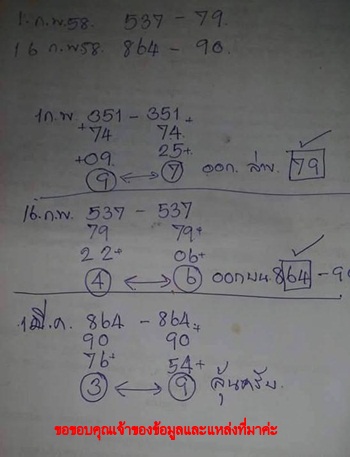 1.ก.พ.58. 537 - 79.
16 ก.พ58. 864 - 90.
1ก.พ. 351 - 351 +
+74 74.
+09. 25+
9 ↔ 7 ออก. ล่าง. 79 ✓
16.ก.พ. 537 - 537
79 79+
22+ 06+
4 ↔ 6 ออกบน. 864 - 90
1มี.ค. 864 - 864+
90 90
76+ 54+
3 ↔ 9 ลุ้นครับ.
ขอขอบคุณเจ้าของข้อมูลและแหล่งที่มาค่ะ